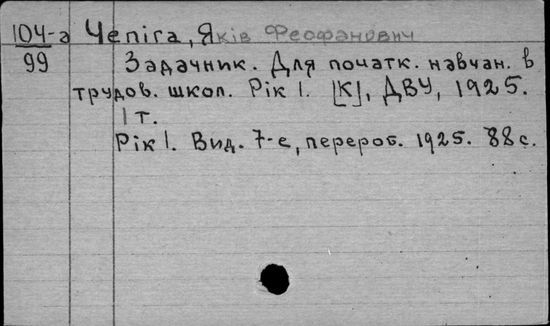 104-а Чепіга, Яків Феофанович
99 Задачник. Для початк. навчан. в
трудов. школ. Рік I. [К], ДВУ, 1925.
1 т.
Рік I. Вид. 7-е, перероб. 1925. 88 с.